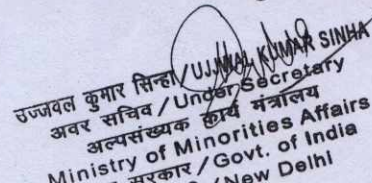 उज्जवल कुमार सिन्हा/UJJWAL KUMAR SINHA
अवर सचिव/Under Secretary
अल्पसंख्यक कार्य मंत्रालय
Ministry of Minorities Affairs
सरकार/Govt. of India
/New Delhi